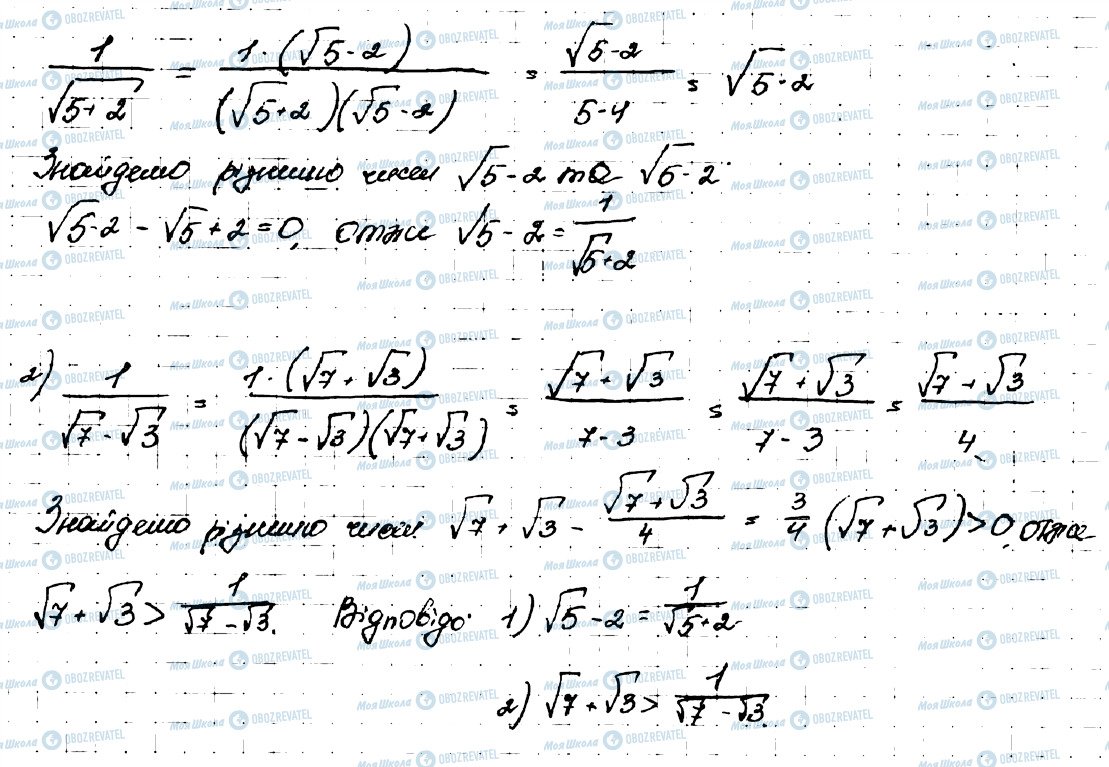 1/√5+2 = 1·(√5-2)/(√5+2)(√5-2) = √5-2/5-4 = √5-2
Знайдемо різницю чисел √5-2 та √5-2
√5-2 - √5+2=0, отже √5-2 = 1/√5+2
2) 1/√7-√3 = 1·(√7+√3)/(√7-√3)(√7+√3) = √7+√3/7-3 = √7+√3/7-3 = √7+√3/4
Знайдемо різницю чисел √7+√3 - √7+√3/4 = 3/4(√7+√3)>0, отже
√7+√3 > 1/√7-√3. Відповідь: 1) √5-2 = 1/√5+2
2) √7+√3 > 1/√7-√3.
Моя Школа OBOZREVATEL